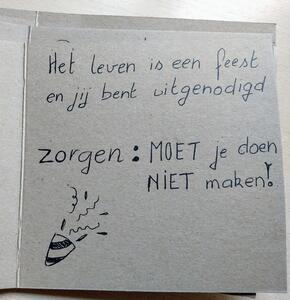 Het leven is een feest
en jij bent uitgenodigd
zorgen: MOET je doen
NIET maken!